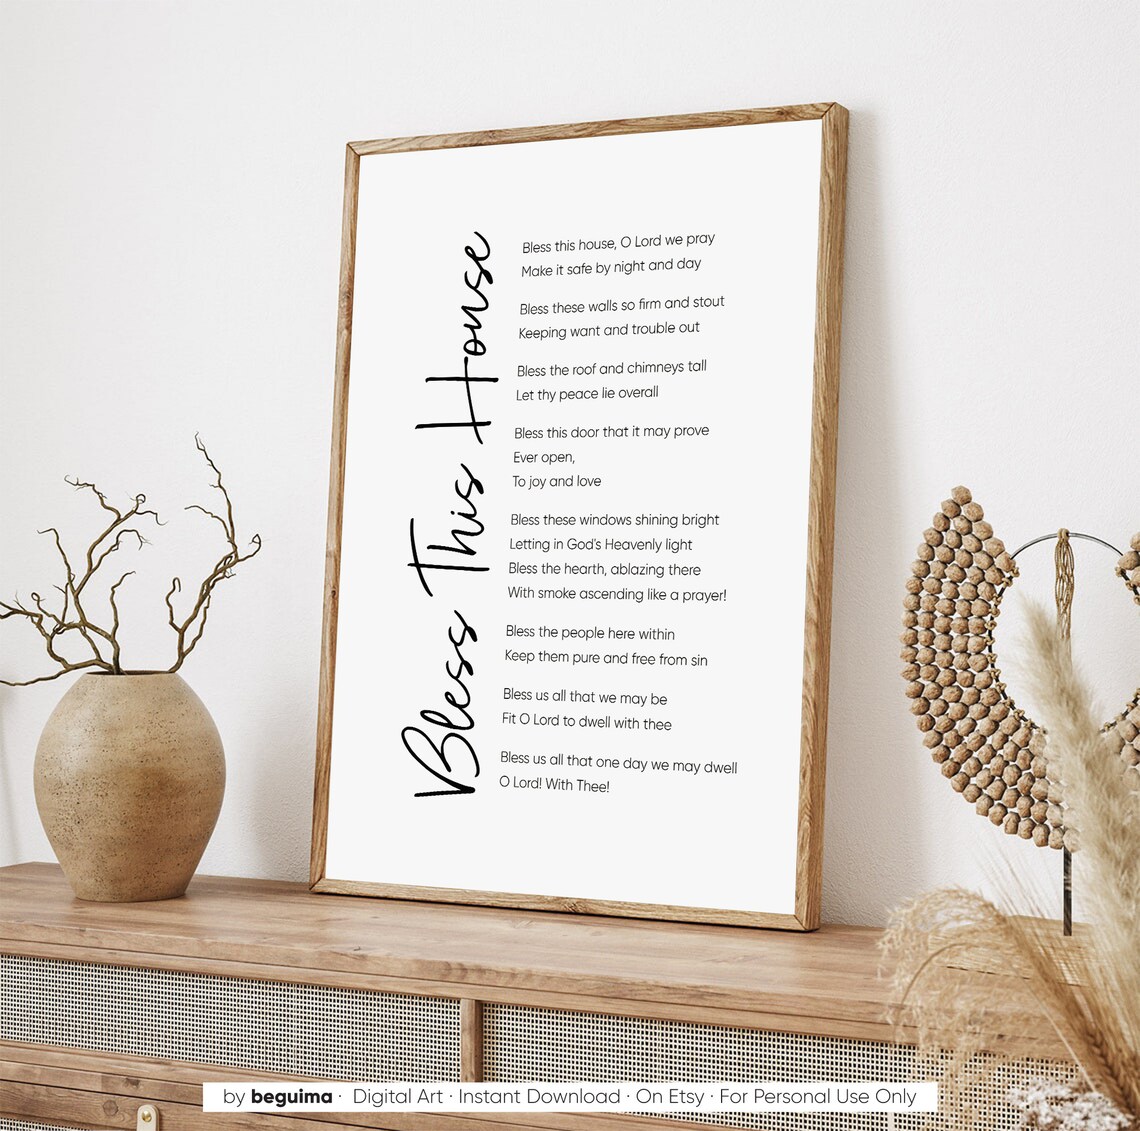 Bless This House
Bless this house, O Lord we pray
Make it safe by night and day
Bless these walls so firm and stout
Keeping want and trouble out
Bless the roof and chimneys tall
Let thy peace lie overall
Bless this door that it may prove
Ever open,
To joy and love
Bless these windows shining bright
Letting in God's Heavenly light
Bless the hearth, ablazing there
With smoke ascending like a prayer!
Bless the people here within
Keep them pure and free from sin
Bless us all that we may be
Fit O Lord to dwell with thee
Bless us all that one day we may dwell
O Lord! With Thee!
by beguima · Digital Art · Instant Download · On Etsy · For Personal Use Only